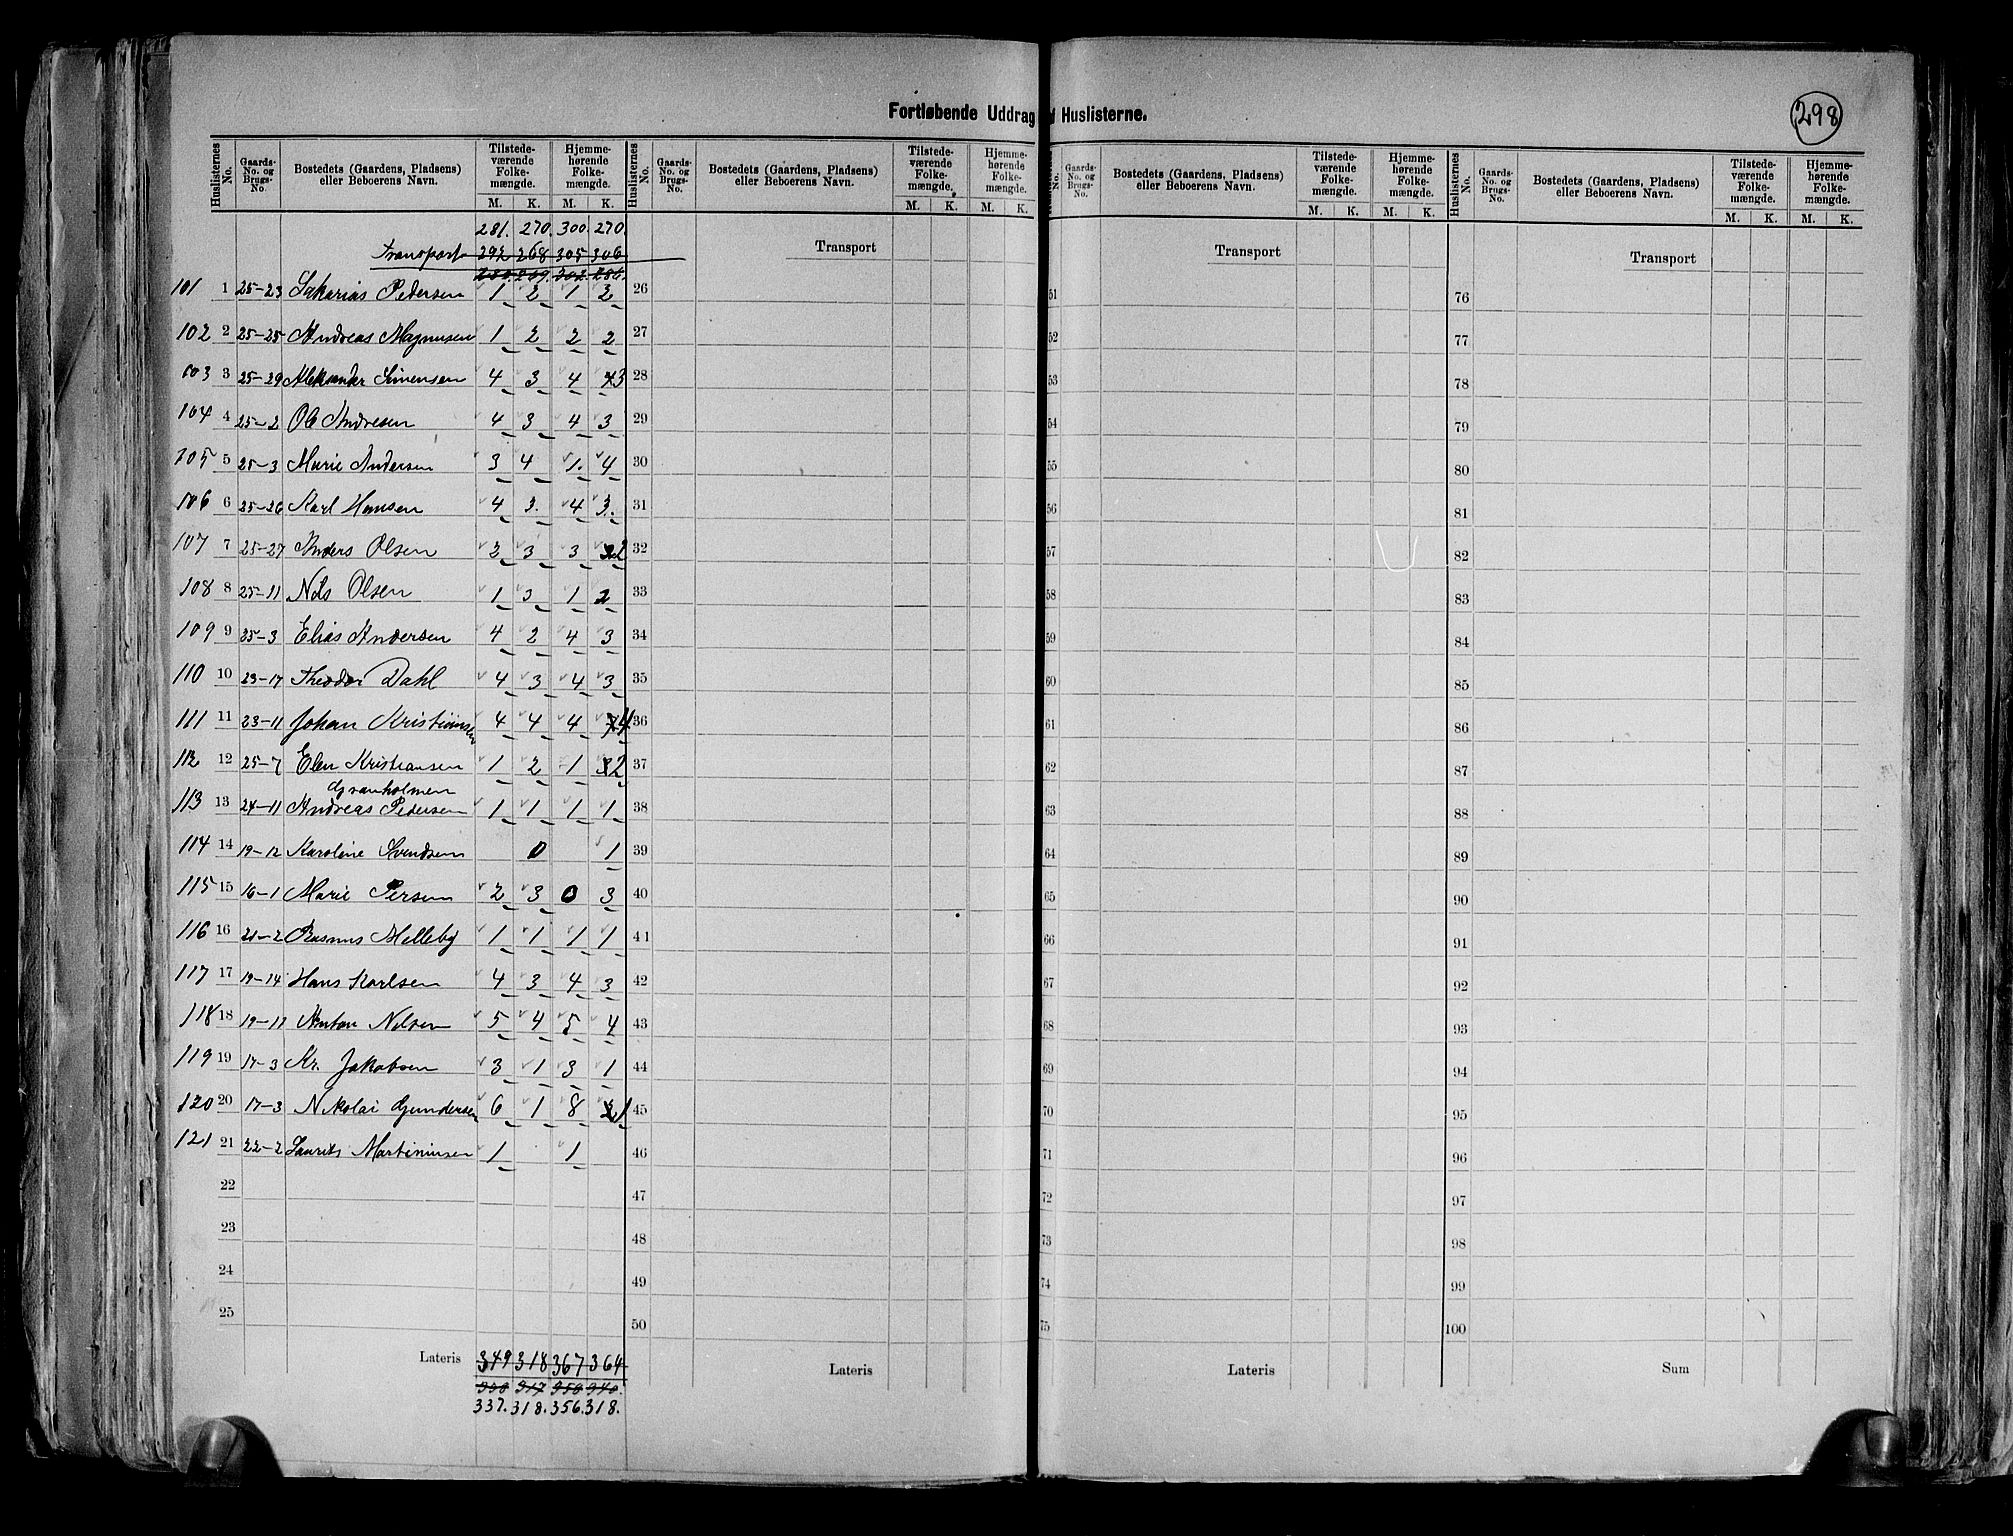 Fortløbende Uddrag Huslisterne.
298
Huslisternes No. Gaards-No. og Brugs-No. Bostedets (Gaardens, Pladsens) eller Beboerens Navn. Tilstedeværende Folkemængde. Hjemmehørende Folkemængde. Huslisternes No. Gaards-No. og Brugs-No. Bostedets (Gaardens, Pladsens) eller Beboerens Navn. Tilstedeværende Folkemængde. Hjemmehørende Folkemængde. No. Gaards-No. og Brugs-No. Bostedets (Gaardens, Pladsens) eller Beboerens Navn. Tilstedeværende Folkemængde. Hjemmehørende Folkemængde. Huslisternes No. Gaards-No. og Brugs-No. Bostedets (Gaardens, Pladsens) eller Beboerens Navn. Tilstedeværende Folkemængde. Hjemmehørende Folkemængde.
M. K. M. K. M. K. M. K. M. K. M. K. M. K. M. K.
281. 270. 300. 270.
Transport 292 268 305 306 Transport Transport Transport
101 1 25-23 Sakarias Pedersen 1 2 1 2 26 51 76
102 2 25-25 Andreas Magnusen 1 2 2 2 27 52 77
103 3 25-29 Aleksander Simensen 4 3 4 3 28 53 78
104 4 25-2 Ole Andresen 4 3 4 3 29 54 79
105 5 25-3 Marie Andersen 3 4 1. 4 30 55 80
106 6 25-26 Karl Hansen 4 3. 4 3. 31 56 81
107 7 25-27 Anders Olsen 2 3 3 2 32 57 82
108 8 25-11 Nils Olsen 1 3 1 2 33 58 83
109 9 25-3 Elias Andersen 4 2 4 3 34 59 84
110 10 23-17 Theodor Dahl 4 3 4 3 35 60 85
111 11 23-11 Johan Kristiansen 4 4 4 4 36 61 86
112 12 25-7 Elen Kristiansen 1 2 1 2 37 62 87
Granholmen
113 13 24-11 Andreas Pedersen 1 1 1 1 38 63 88
114 14 19-12 Karoline Svendsen 0 1 39 64 89
115 15 16-1 Marie Persen 2 3 0 3 40 65 90
116 16 21-2 Rasmus Melleby 1 1 1 1 41 66 91
117 17 19-14 Hans Karlsen 4 3 4 3 42 67 92
118 18 19-17 Anton Nilsen 5 4 5 4 43 68 93
119 19 17-3 Kr. Jakobsen 3 1 3 1 44 69 94
120 20 17-3 Nikolai Gundersen 6 1 8 1 45 70 95
121 21 22-2 Laurits Martiniusen 1 1 46 71 96
22 47 72 97
23 48 73 98
24 49 74 99
25 50 75 100
Lateris 349 318 367 364 Lateris Lateris Sum
337. 318. 356. 318.